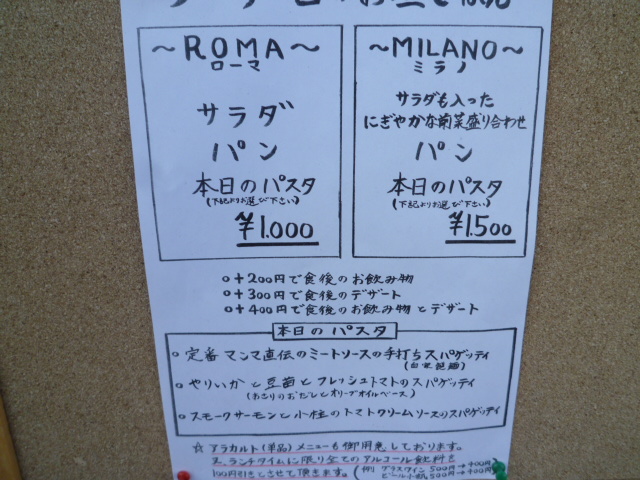 ～ROMA～
ローマ
サラダ
パン
本日のパスタ
(下記よりお選び下さい)
¥1.000
～MILANO～
ミラノ
サラダも入った
にぎやかな前菜盛り合わせ
パン
本日のパスタ
(下記よりお選び下さい)
¥1.500
○+200円で食後のお飲み物
○+300円で食後のデザート
○+400円で食後のお飲み物とデザート
本日のパスタ
○定番マンマ直伝のミートソースの手打ちスパゲッティ
(自家製麺)
○やりいかと豆苗とフレッシュトマトのスパゲッティ
(あさりのおだしとオリーブオイルベース)
○スモークサーモンと小柱のトマトクリームソースのスパゲッティ
☆アラカルト(単品)メニューも御用意しております。
又、ランチタイムに限り全てのアルコール飲料を
100円引きとさせて頂きます。
(例)グラスワイン500円→400円
ビール小瓶500円→400円